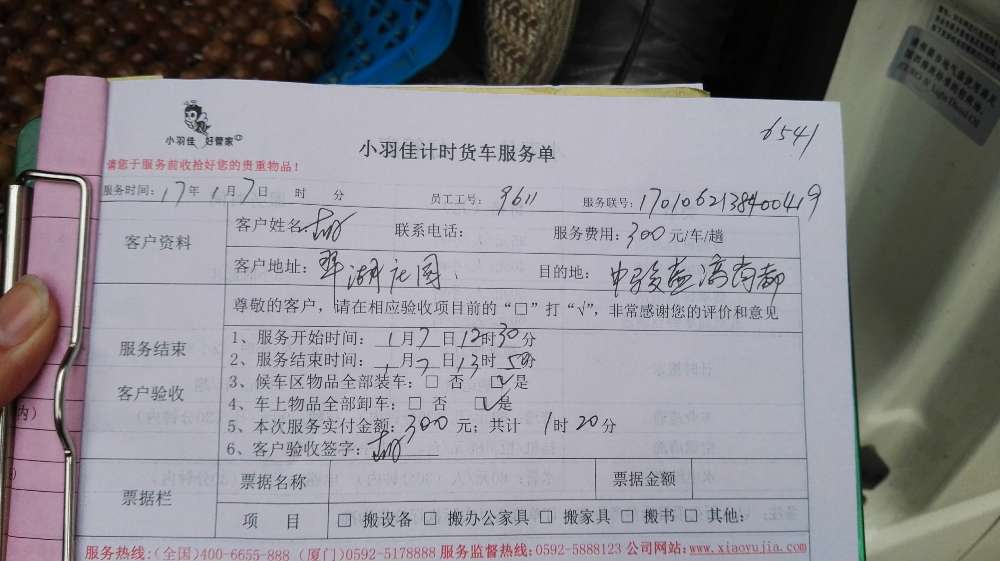 小羽佳 好管家
小羽佳计时货车服务单
6541
请您于服务前收拾好您的贵重物品！
服务时间：17年 1月7日 时 分 员工工号：9611 服务联号：1701062138400419
客户资料
客户姓名： 联系电话： 服务费用：300元/车/趟
客户地址：翠湖庄园 目的地：中骏蓝湾尚都
尊敬的客户，请在相应验收项目前的“□”打“√”，非常感谢您的评价和意见
服务结束
客户验收
1、服务开始时间：1月7日12时30分
2、服务结束时间：1月7日13时50分
3、候车区物品全部装车：□ 否 ☑是
4、车上物品全部卸车：□ 否 ☑是
5、本次服务实付金额：300元；共计 1时20分
6、客户验收签字：
票据栏
票据名称 票据金额
项 目 □ 搬设备 □ 搬办公家具 □ 搬家具 □ 搬书 □ 其他：
服务热线：(全国)400-6655-888 (厦门)0592-5178888 服务监督热线：0592-5888123 公司网站：www.xiaoyujia.com